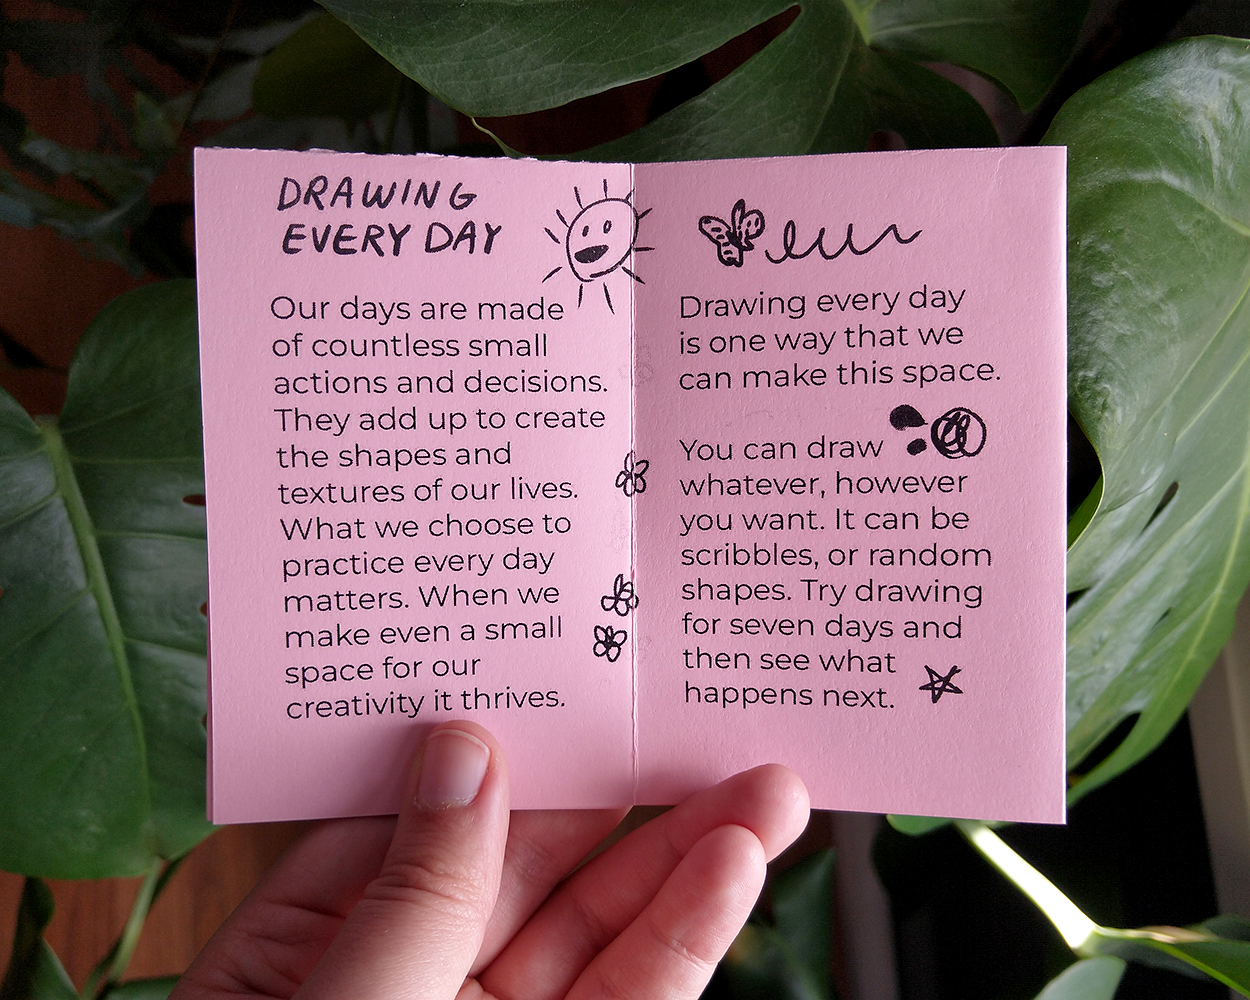 DRAWING
EVERY DAY
Our days are made
of countless small
actions and decisions.
They add up to create
the shapes and
textures of our lives.
What we choose to
practice every day
matters. When we
make even a small
space for our
creativity it thrives.
Drawing every day
is one way that we
can make this space.
You can draw
whatever, however
you want. It can be
scribbles, or random
shapes. Try drawing
for seven days and
then see what
happens next.